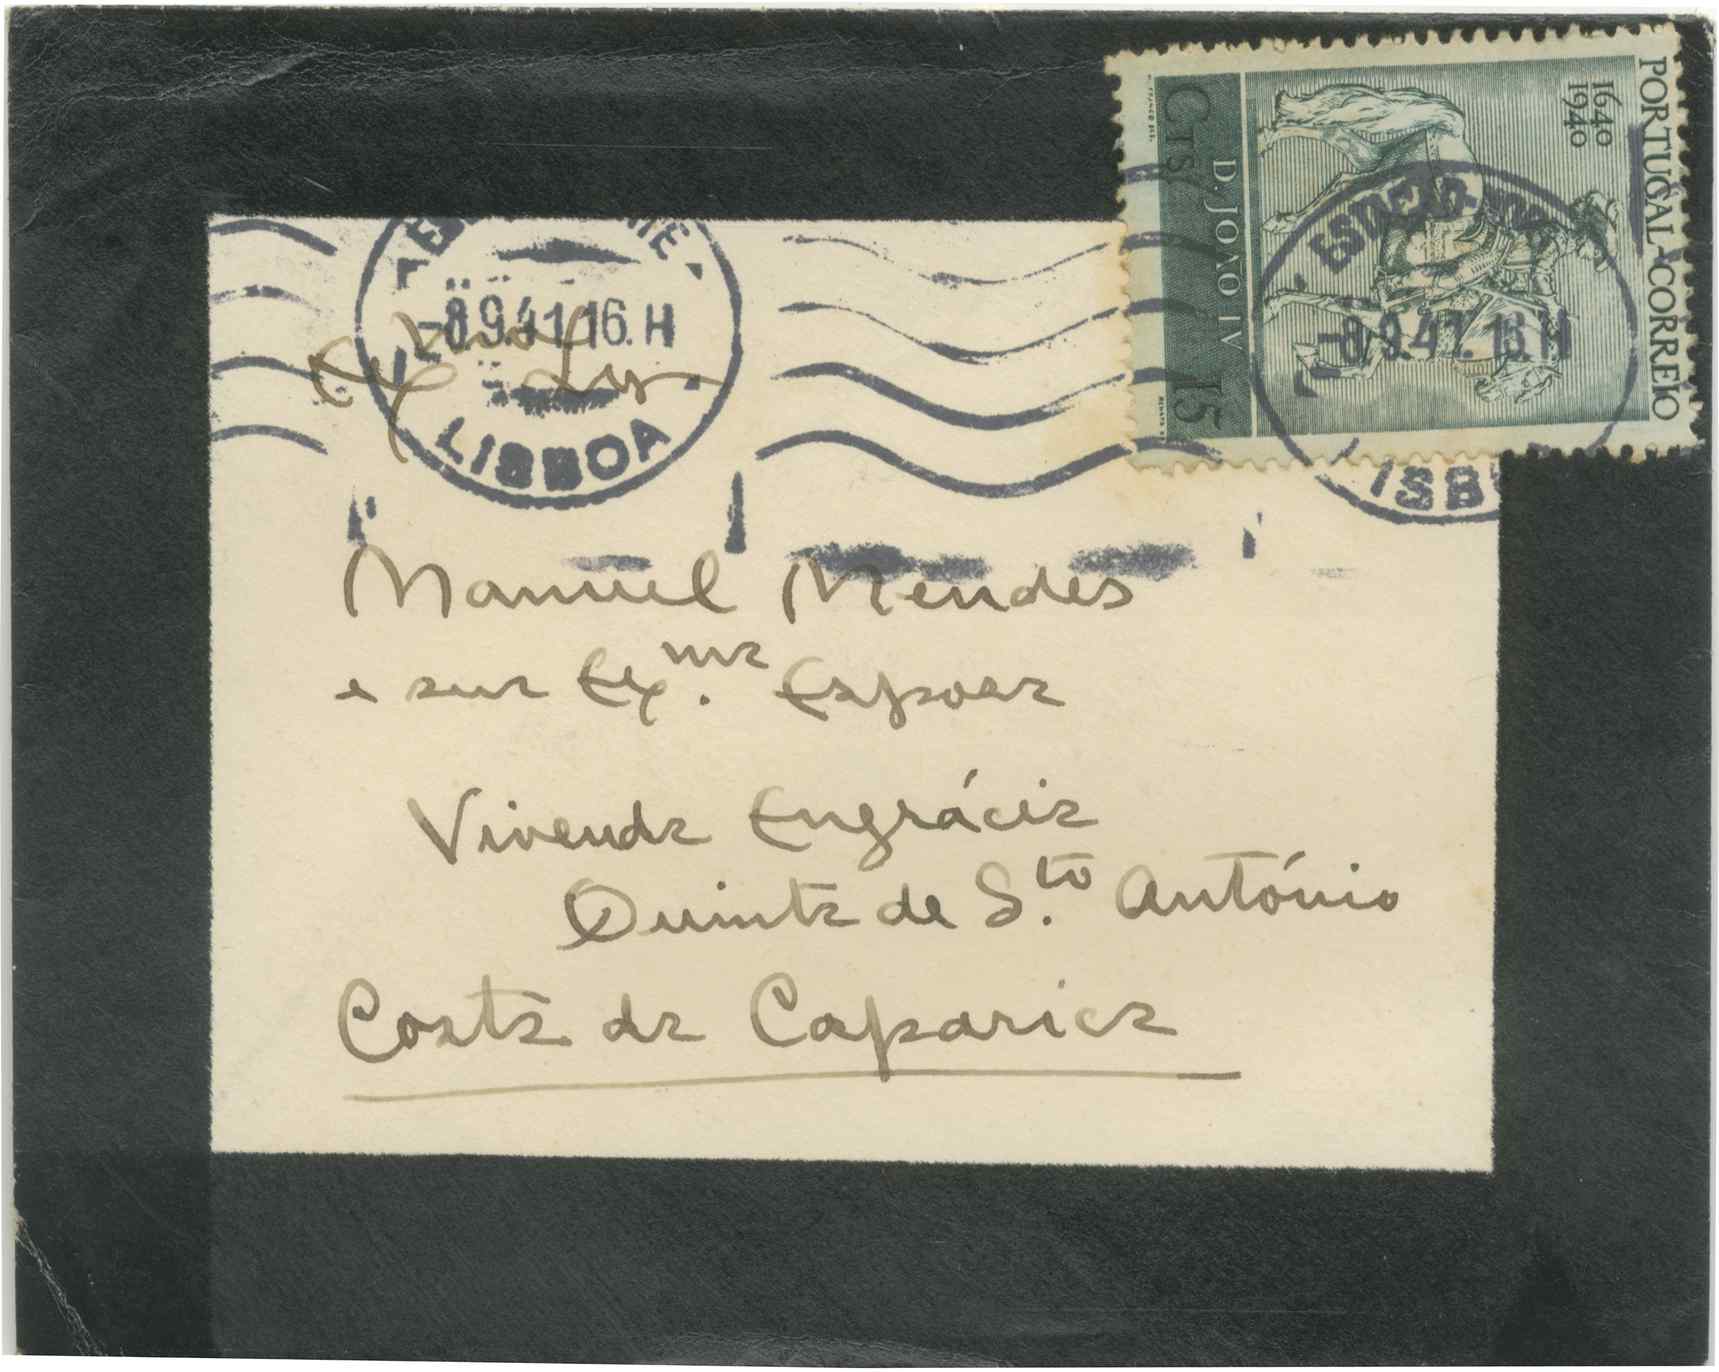 PORTUGAL-CORREIO
1640
1940
D. JOÃO IV
CTS 15
-8.9.41.16.H
LISBOA
-8.9.41.16.H
LISB
Ex.mos Srs.
Manuel Mendes
e sua Ex.ma Esposa
Vivenda Engrácia
Quinta de S.to António
Costa da Caparica